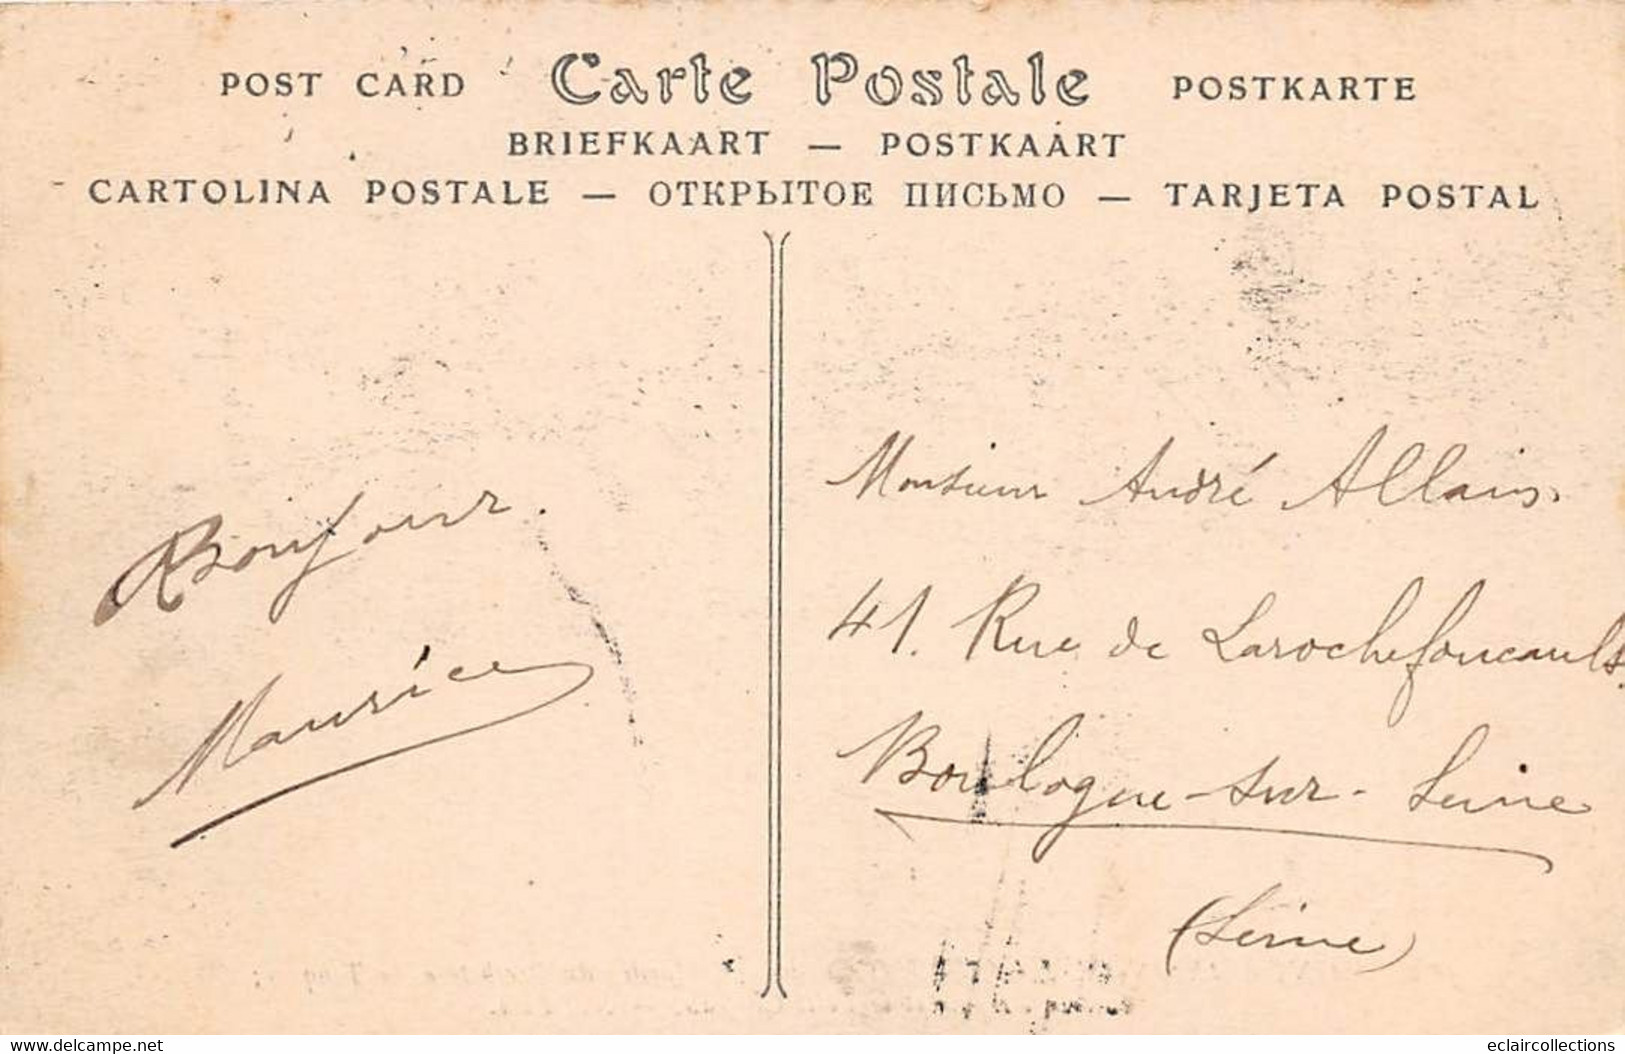 POST CARD Carte Postale POSTKARTE
BRIEFKAART — POSTKAART
CARTOLINA POSTALE — ОТКРЫТОЕ ПИСЬМО — TARJETA POSTAL
Bonjour.
Maurice
Monsieur André Allain.
41. Rue de Larochefoucault.
Boulogne-sur-Seine
(Seine)
https://www.delcampe.net
eclaircollections